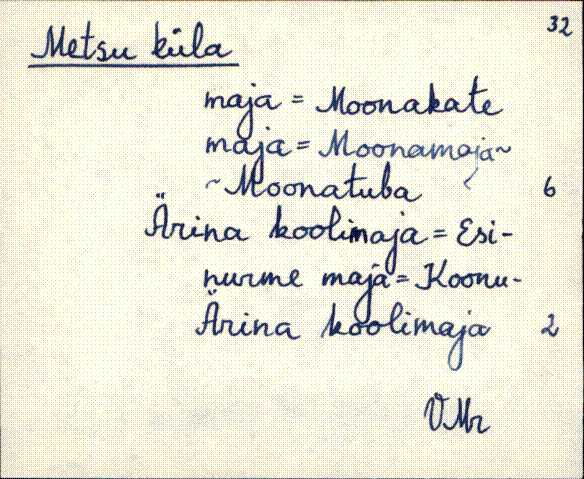 32
Metsu küla
maja = Moonakate
maja = Moonamaja ~
~ Moonatuba 6
Ärina koolimaja = Esi-
nurme maja = Koonu-
Ärina koolimaja 2
VMr